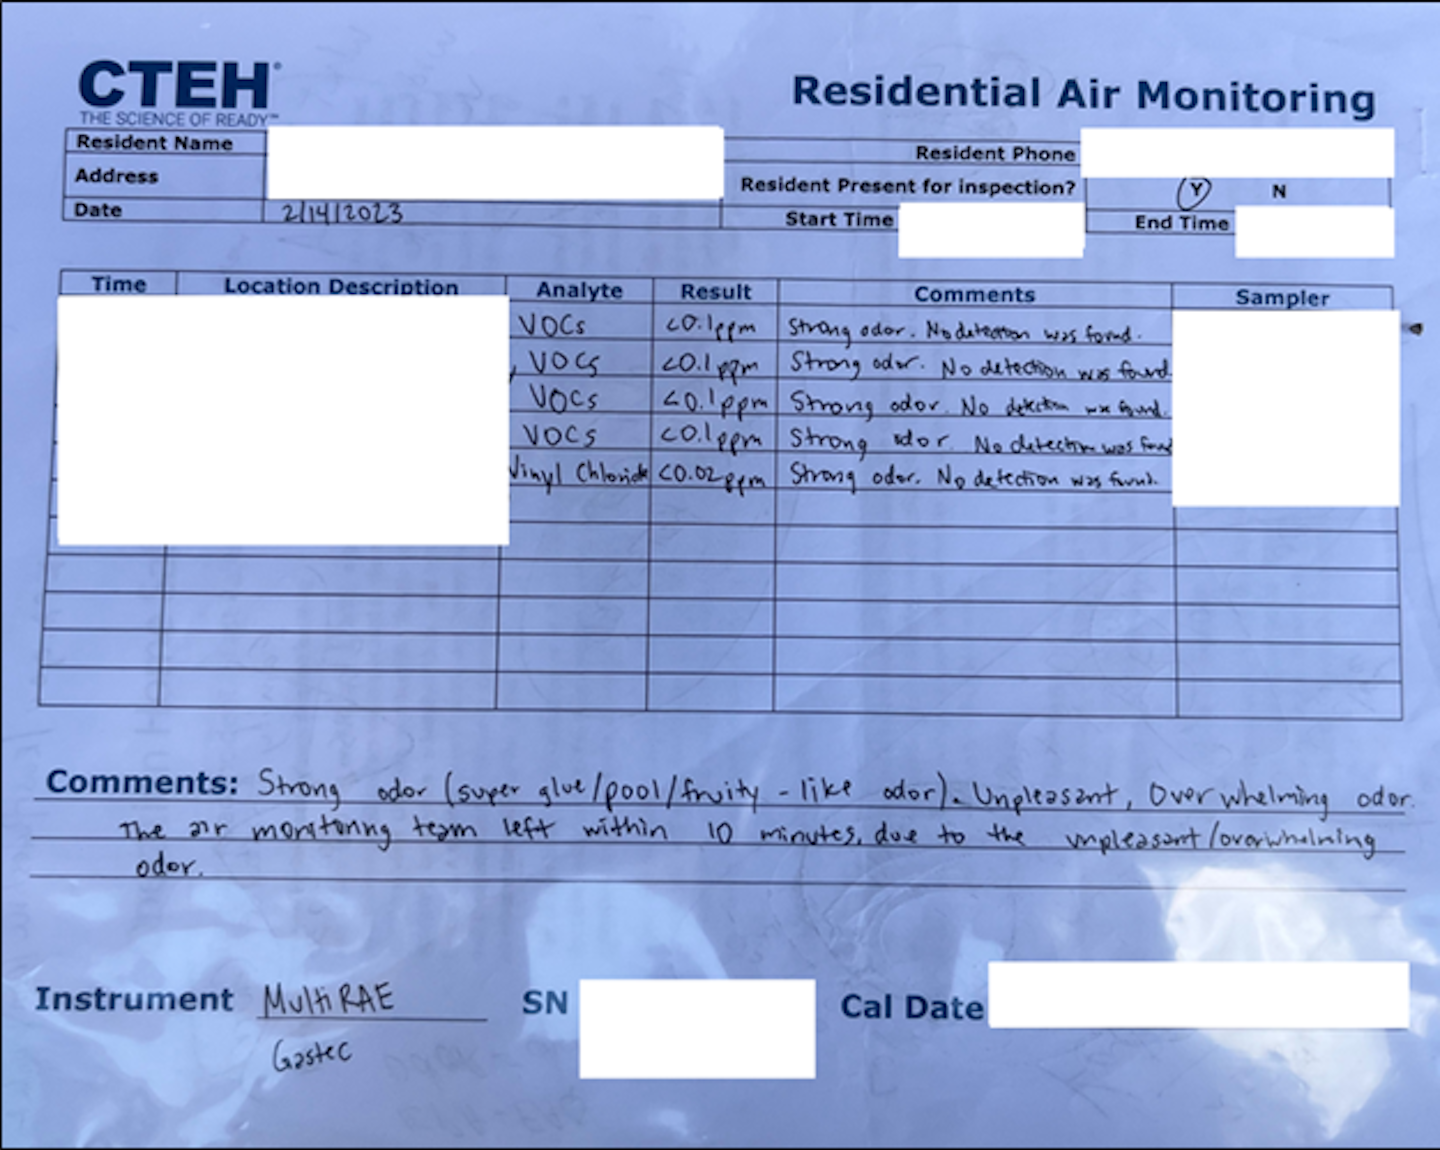 CTEH®
THE SCIENCE OF READY™
Residential Air Monitoring
Resident Name
Resident Phone
Address
Resident Present for inspection? Y N
Date 2/14/2023
Start Time End Time
Time Location Description Analyte Result Comments Sampler
VOCs <0.1ppm Strong odor. No detection was found.
VOCs <0.1ppm Strong odor. No detection was found.
VOCs <0.1ppm Strong odor. No detection was found.
VOCs <0.1ppm Strong odor. No detection was found
Vinyl Chloride <0.02ppm Strong odor. No detection was found.
Comments: Strong odor (super glue/pool/fruity - like odor). Unpleasant, Overwhelming odor.
The air monitoring team left within 10 minutes, due to the unpleasant/overwhelming
odor.
Instrument MultiRAE SN Cal Date
Gastec